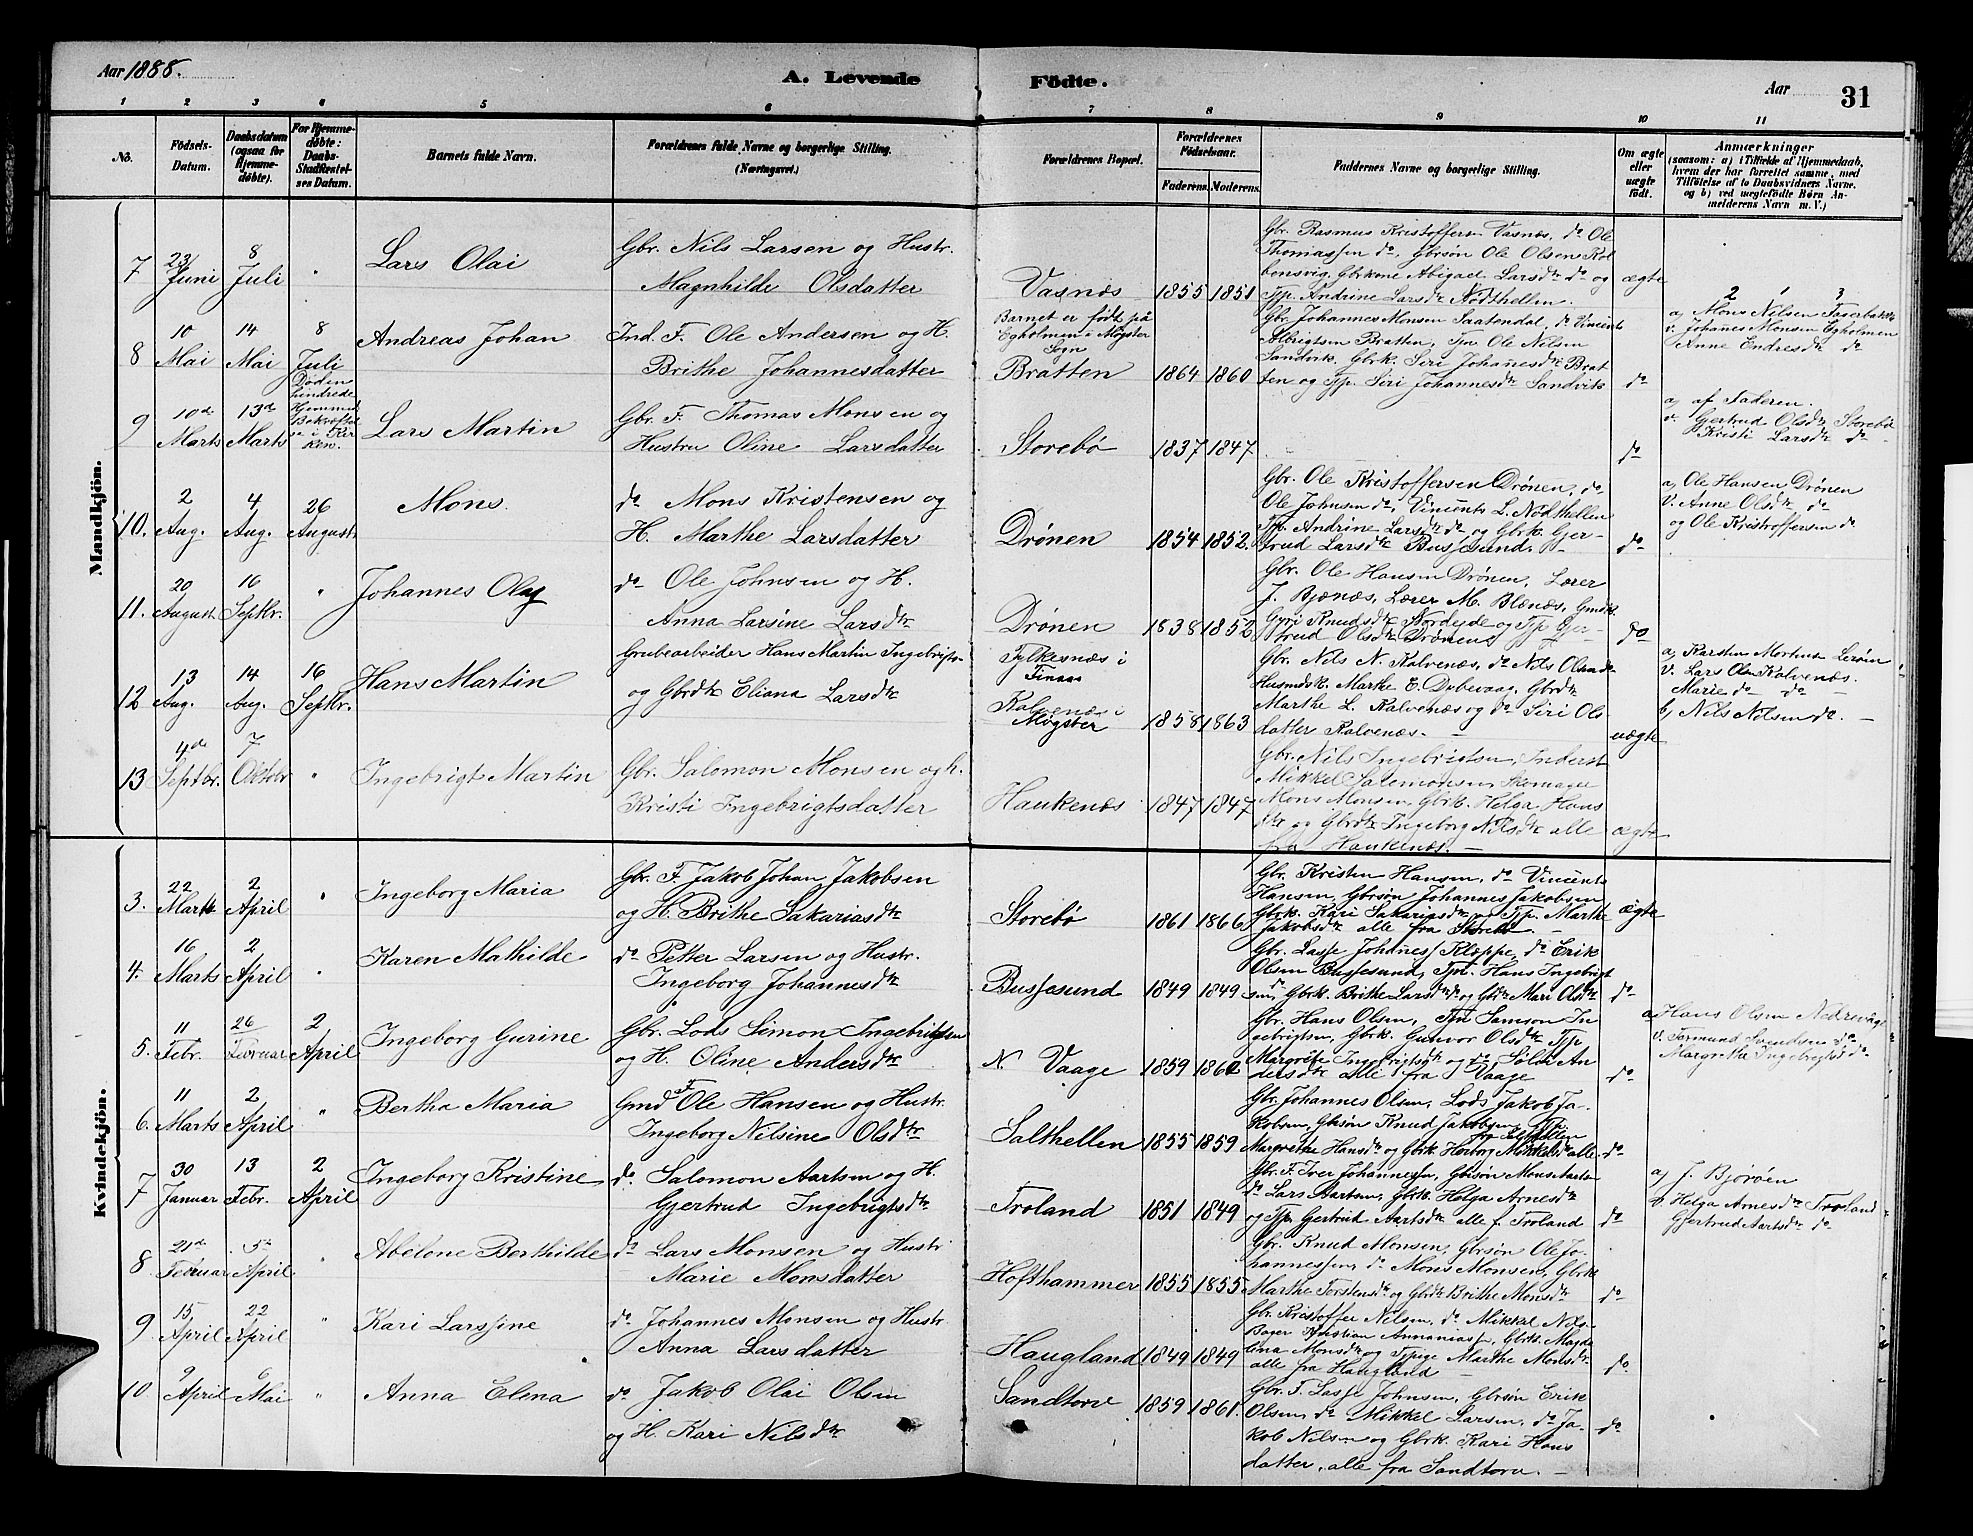 Aar 1888.
A. Levende Födte.
Aar
31
1 2 3 4 5 6 7 8 9 10 11
No.
Födsels-
Datum.
Daabsdatum
(ogsaa för
Hjemme-
döbte).
For Hjemme-
döbte:
Daabs-
Stadfæstel-
ses Datum.
Barnets fulde Navn.
Forældrenes fulde Navne og borgerlige Stilling.
(Næringsvei.)
Forældrenes Bopæl.
Forældrenes
Födselsaar.
Faderens.
Moderens.
Faddernes Navne og borgerlige Stilling.
Om ægte
eller
uægte
födt.
Anmærkninger
(saasom: a) i Tilfælde af Hjemmedaab,
hvem der har forrettet samme, med
Tilföielse af to Daabsvidners Navne.
og b) ved uægtefödte Börn An-
melderens Navn m. V.)
Mandkjön.
7
23/
Juni
8
Juli
"
Lars Olai
Gbr. Nils Larsen og Hustr.
Magnhilde Olsdatter
Vasnæs
1855
1851
Gbr. Rasmus Kristoffersn Vasnæs, do Ole
Thomassen do, Gbrsön Ole Olsen Kol
bensvig, Gbrkone Abigael Larsdtr do og
Tjp. Andrine Larsdtr Nödthellen.
ægte
8
10
Mai
14
Mai
8
Juli
Andreas Johan
Ind. F. Ole Andersen og H.
Brithe Johannesdatter
Barnet er födt på
Egholmen i Mögster
Sogn
Bratten
1864
1860
Gbr. Johannes Monsen Saatendal, do Vincents
Albrigtsen Bratten, Tjn Ole Nilsen
Sandvik, Gbrk. Siri Johannesdtr Brat
ten og Tjp. Siri Johannesdtr Sandvik
do
2 1 3
a, Mons Nilsen Fagerbakke
v. Johanes Monsen Egholmen
Anne Endresdtr do
9
10de
Marts
13de
Marts
Döden
hindrede
Hjemmed.
Bekræftel
se i Kir
ken.
Lars Martin
Gbr. F. Thomas Monsen og
Hustru Oline Larsdatter
Storebö
1837
1847
do
a, af Faderen.
v. Gjertrud Olsdtr Storebö
Kristi Larsdtr do
10.
2
Aug.
4
Aug.
26
August
Mons.
do Mons Kristensen og
H. Marthe Larsdatter
Drönen
1854
1852.
Gbr. Ole Kristoffersen Drönen, do
Ole Johnsen do, Vincents L. Nödthellen
Tjp. Andrine Larsdtr do og Gbrk. Gjer-
trud Larsdtr Bussesund.
do
a, Ole Hansen Drönen
V. Anne Olsdtr do
og Ole Kristoffersen do
11.
20
August
16
Septbr.
"
Johannes Olaf
do Ole Johnsen og H.
Anna Larsine Larsdtr
Drönen
1838
1852
Gbr. Ole Hansen Drönen, Lærer
J. Bjænæs, Lærer M. Blænæs, Gmdk
Gyri Knudsdtr Nordeide og Tjp Gjer-
trud Olsdtr Drönen
do
12
13
Aug.
14
Aug.
16
Septbr.
Hans Martin
Grubearbeider Hans Martin Ingebrigts-
og Gbrdtr Eliana Larsdtr
Fylkesnæs i
Finaas
Kalvenæs i
Mögster
1858
1863
Gbr. Nils N. Kalvenæs, do Nils Olsen do
Husmdsk. Marthe E. Dybevaag, Gbrdtr
Marthe L. Kalvenæs og do Siri Ols-
datter Kalvenæs.
uægte
a, Karsten Mortens Leröen
V. Lars Olsen Kalvenæs.
Marie do do
b, Nils Nilsen do.
13
4de
Septbr.
7
Oktobr
"
Ingebrigt Martin
Gbr. Salomon Monsen og h.
Kristi Ingebrigtsdatter
Haukenæs
1847
1847
Gbr. Nils Ingebrigtsen, Inderst
Mikkel Salemonsen, Skomager
Mons Monsen, Gbrk. Helga Hans
dtr og Gbrdtr Ingeborg Nilsdtr alle
fra Haukenæs.
ægte
Kvindekjön.
3.
22
Marts
2
April
"
Ingeborg Maria
Gbr. F. Jakob Johan Jakobsen
og H. Brithe Sakariasdtr
Storebö
1861
1866
Gbr. Kristen Hansen, do Vincents
Hansen, Gbrsön Johannes Jakobsen
Gbrk. Kari Sakariasdtr og Tjp. Marthe
Jakobsdtr alle fra Storebö
ægte
4.
16
Marts
2
April
"
Karen Mathilde
do Petter Larsen og Hustr.
Ingeborg Johannesdtr
Bussesund
1849
1849
Gbr. Lasse Johannes Klæppe, do Erik
Olsen Bussesund, Tjn. Hans Ingebrigt
sen do, Gbrk. Brithe Larsdtr do og Gbdtr Mari Olsdtr
do
5.
11
Febr.
26
Februar
2
April
Ingeborg Gurine
Gbr. Lods Simon Ingebrigtsen
og H. Oline Andersdtr
N. Vaage
1859
1862
Gbr. Hans Olsen, Tjn Samson In
gebrigtsen, Gbrk. Gunvor Olsdtr Tjp
Margrete Ingebrigtsdtr og do Sölvi An
dersdtr alle fra Vaage
do
a, Hans Olsen Nedrevåge
V. Tormund Simonsen do
Margrethe Ingebrigtsd do
6.
11
Marts
2
April
"
Bertha Maria
Gmd F Ole Hansen og Hustr.
Ingeborg Nilsine Olsdtr
Salthellen
1855
1859
Gbr. Johannes Olsen, Lods Jakob Ja-
kobsen, Gbrsön Knud Jakobsen, Tjp.
fra Salthellen
Margrethe Hansdtr og Gbrk. Herborg Mikkelsdtr alle.
do
7
30
Januar
13
Febr.
2
April
Ingeborg Kristine
do Salomon Aartsen og H.
Gjertrud Ingebrigtsdtr
Troland
1851
1849
Gbr. F. Iver Johannessen, Gbrsön Mons Aarts-
do Lars Aartsen, Gbrk. Helga Arnesdtr
og Tjp. Gjertrud Aartsdtr alle f. Troland
do
a, J. Björöen
V. Helga Arnesdtr Troland
Gjertrud Aartsdtr do
8
21de
Februar
5te
April
"
Abelone Berthilde
do Lars Monsen og Hustr
Marie Monsdatter
Hofthammer
1855
1855
Gbr. Knud Monsen, Gbrsön Ole Jo-
hannessen, do Mons Monsen, Gbrk
Marthe Torstensdtr og Gbrdtr Brithe Monsdtr
do
9
15
April
22
April
"
Kari Larssine
do Johannes Monsen og Hustr.
Anna Larsdatter
Haugland
1849
1849
Gbr. Kristoffer Nilsen, do Mikkel Nils-
Bager Kristian Annaniass., Gbrk. Magda
lena Monsdtr og Tjpige Marthe Monsdtr
alle fra Haugland
do
10
9
April
6
Mai
"
Anna Elena
do Jakob Olai Olsen
og H. Kari Nilsdtr
Sandtorv
1859
1861.
Gbr. F. Lasse Johnsen, Gbrsön Erik
Olsen, do Mikkel Larsen, do Ja-
kob Nilsen og Gbrk. Kari Hans
datter, alle fra Sandtorv.
do